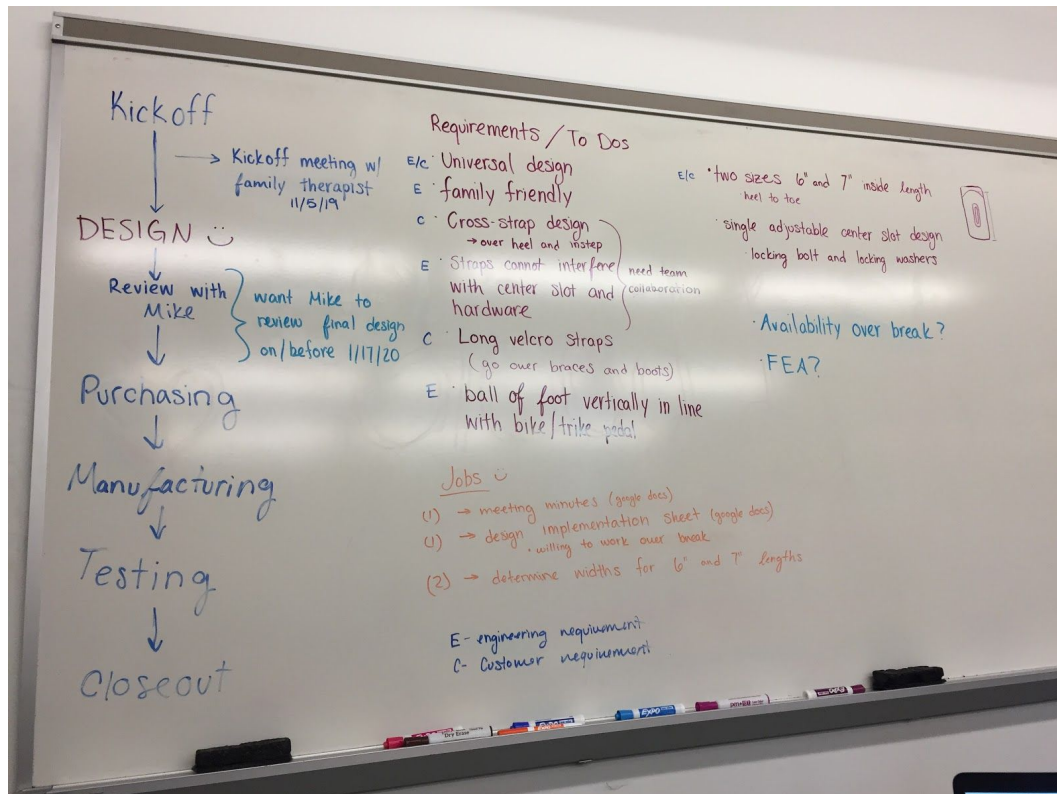 Kickoff
→ Kickoff meeting w/
family therapist
11/5/19
DESIGN
Review with
Mike
want Mike to
review final design
on/before 1/17/20
Purchasing
Manufacturing
Testing
Closeout
Requirements / To Dos
E/C · Universal design
E · family friendly
C · Cross-strap design
→ over heel and instep
E · Straps cannot interfere
with center slot and
hardware
need team
collaboration
C · Long velcro straps
(go over braces and boots)
E · ball of foot vertically in line
with bike/trike pedal
E/C · two sizes 6" and 7" inside length
heel to toe
· single adjustable center slot design
· locking bolt and locking washers
· Availability over break?
· FEA?
Jobs
(1) → meeting minutes (google docs)
(1) → design implementation sheet (google docs)
· willing to work over break
(2) → determine widths for 6" and 7" lengths
E - engineering requirement
C - Customer requirement
Dry Erase
EXPO
EXPO